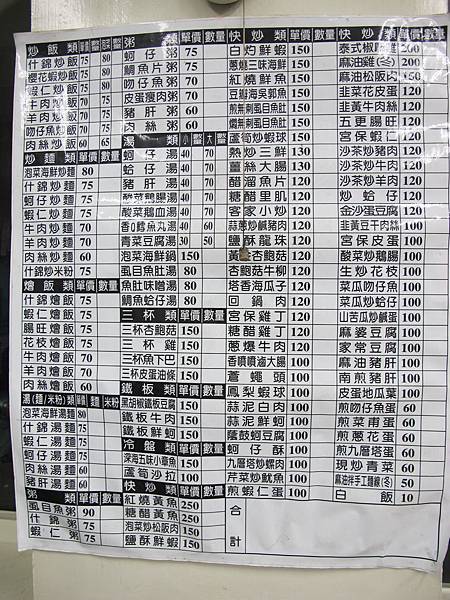 炒飯類 單價 數量
什錦炒飯 75 80
櫻花蝦炒飯 75 80
蝦仁炒飯 75
牛肉炒飯 70
羊肉炒飯 70
吻仔魚炒飯 70
肉絲炒飯 60 65
炒麵類 單價 數量
泡菜海鮮炒麵 80
什錦炒麵 75
蚵仔炒麵 75
蝦仁炒麵 75
牛肉炒麵 70
羊肉炒麵 70
肉絲炒麵 60
什錦炒米粉 75
燴飯類 單價 數量
什錦燴飯 75
蝦仁燴飯 75
腸旺燴飯 70
花枝燴飯 75
牛肉燴飯 70
羊肉燴飯 70
肉絲燴飯 60
湯(麵/米粉)類 單價 麵 米粉
泡菜海鮮湯麵 80
什錦湯麵 75
蝦仁湯麵 75
蚵仔湯麵 75
肉絲湯麵 60
豬肝湯麵 60
粥類 單價 數量
虱目魚粥 90
什錦粥 75
蝦仁粥 75
粥類 單價 數量
蚵仔粥 75
鯛魚片粥 75
吻仔魚粥 70
皮蛋瘦肉粥 70
豬肝粥 60
肉絲粥 60
湯類 小 數量 大 數量
蚵仔湯 40 70
蛤仔湯 40 70
豬肝湯 40 70
酸菜鵝腸湯 40 70
酸菜鵝血湯 40 70
青菜豆腐湯 30 50
泡菜海鮮鍋 150
虱目魚肚湯 80
魚肚味噌湯 80
鯛魚蛤仔湯 80
三杯類 單價 數量
三杯杏鮑菇 150
三杯雞 150
三杯魚下巴 150
三杯皮蛋油條 150
鐵板類 單價 數量
黑胡椒鐵板豆腐 150
鐵板牛肉 150
鐵板鮮蚵 150
冷盤類 單價 數量
深海五味小章魚 150
蘆筍沙拉 100
快炒類 單價 數量
紅燒黃魚 250
糖醋黃魚 250
泡菜炒松阪肉 150
鹽酥鮮蝦 150
快炒類 單價 數量
白灼鮮蝦 150
蔥爆三味海鮮 150
紅燒鮮魚 150
豆瓣海吳郭魚 150
煎無刺虱目魚肚 150
蘆筍炒蝦球 150
熱炒三鮮 130
薑絲大腸 120
醋溜魚片 120
糖醋里肌 120
客家小炒 120
蒜蔥炒鹹豬肉 120
鹽酥龍珠 120
杏鮑菇牛柳 120
塔香海瓜子 120
回鍋肉 120
宮保雞丁 120
糖醋雞丁 120
蔥爆牛肉 120
香噴噴滷大腸 100
蒼蠅頭 100
鳳梨蝦球 100
蒜泥白肉 100
蒜泥鮮蚵 100
蔭鼓蚵豆腐 100
蚵仔酥 100
九層塔炒螺肉 100
芹菜炒魷魚 100
煎蝦仁蛋 100
合計
快炒類 單價 數量
泰式椒麻雞 200
麻油雞(冬) 200
麻油松阪肉 150
韭菜花皮蛋 120
韭黃牛肉絲 120
五更腸旺 120
宮保蝦仁 120
沙茶炒豬肉 120
沙茶炒牛肉 120
沙茶炒羊肉 120
炒蛤仔 120
金沙蛋豆腐 120
韭黃豆干肉絲 100
宮保皮蛋 100
酸菜炒鵝腸 100
生炒花枝 100
菜瓜吻仔魚 100
菜瓜炒蛤仔 100
山苦瓜炒鹹蛋 100
麻婆豆腐 100
家常豆腐 100
麻油豬肝 100
南煎豬肝 100
皮蛋地瓜葉 100
煎吻仔魚蛋 60
煎菜甫蛋 60
煎蔥花蛋 60
煎九層塔蛋 60
現炒青菜 60
麻油拌手工麵線(冬) 50
白飯 10